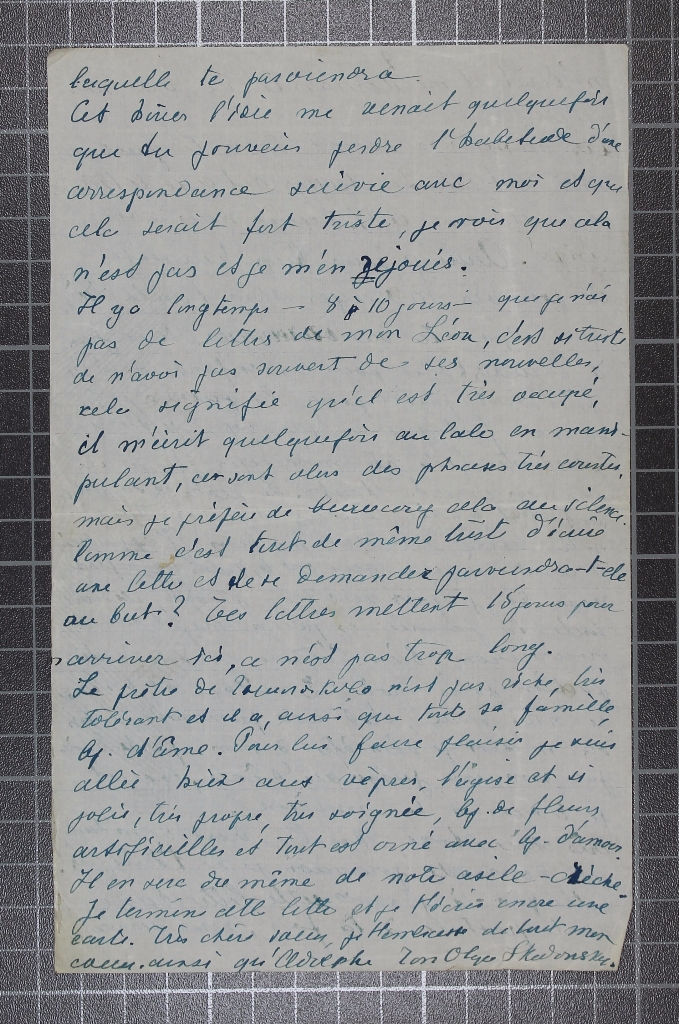 laquelle te parviendra
Cet hiver l'idée me venait quelquefois
que tu pouvais perdre l'habitude d'une
correspondance suivie avec moi et que
cela serait fort triste, je vois que cela
n'est pas et je m'en réjouis.
Il y a longtemps — 8 à 10 jours — que je n'ai
pas de lettres de mon Léon, c'est si triste
de n'avoir pas souvent de ses nouvelles,
cela signifie qu'il est très occupé,
il m'écrit quelquefois au labo en mani-
pulant, ce sont alors des phrases très courtes,
mais je préfère de beaucoup cela au silence.
Comme c'est tout de même triste d'écrire
une lettre et de se demander parviendra-t-elle
au but? Tes lettres mettent 15 jours pour
arriver ici, ce n'est pas trop long.
Le prêtre de n'est pas riche, très
tolérant et il a, ainsi que toute sa famille,
bp. d'âme. Pour lui faire plaisir je suis
allée hier aux vêpres, l'église est si
jolie, très propre, très soignée, bp. de fleurs
artificielles et tout est orné avec bp. d'amour.
Il en sera de même de notre asile-crèche.
Je termine cette lettre et je t'écris encore une
carte. Très chère soeur, je t'embrasse de tout mon
coeur ainsi qu'Adolphe Olga